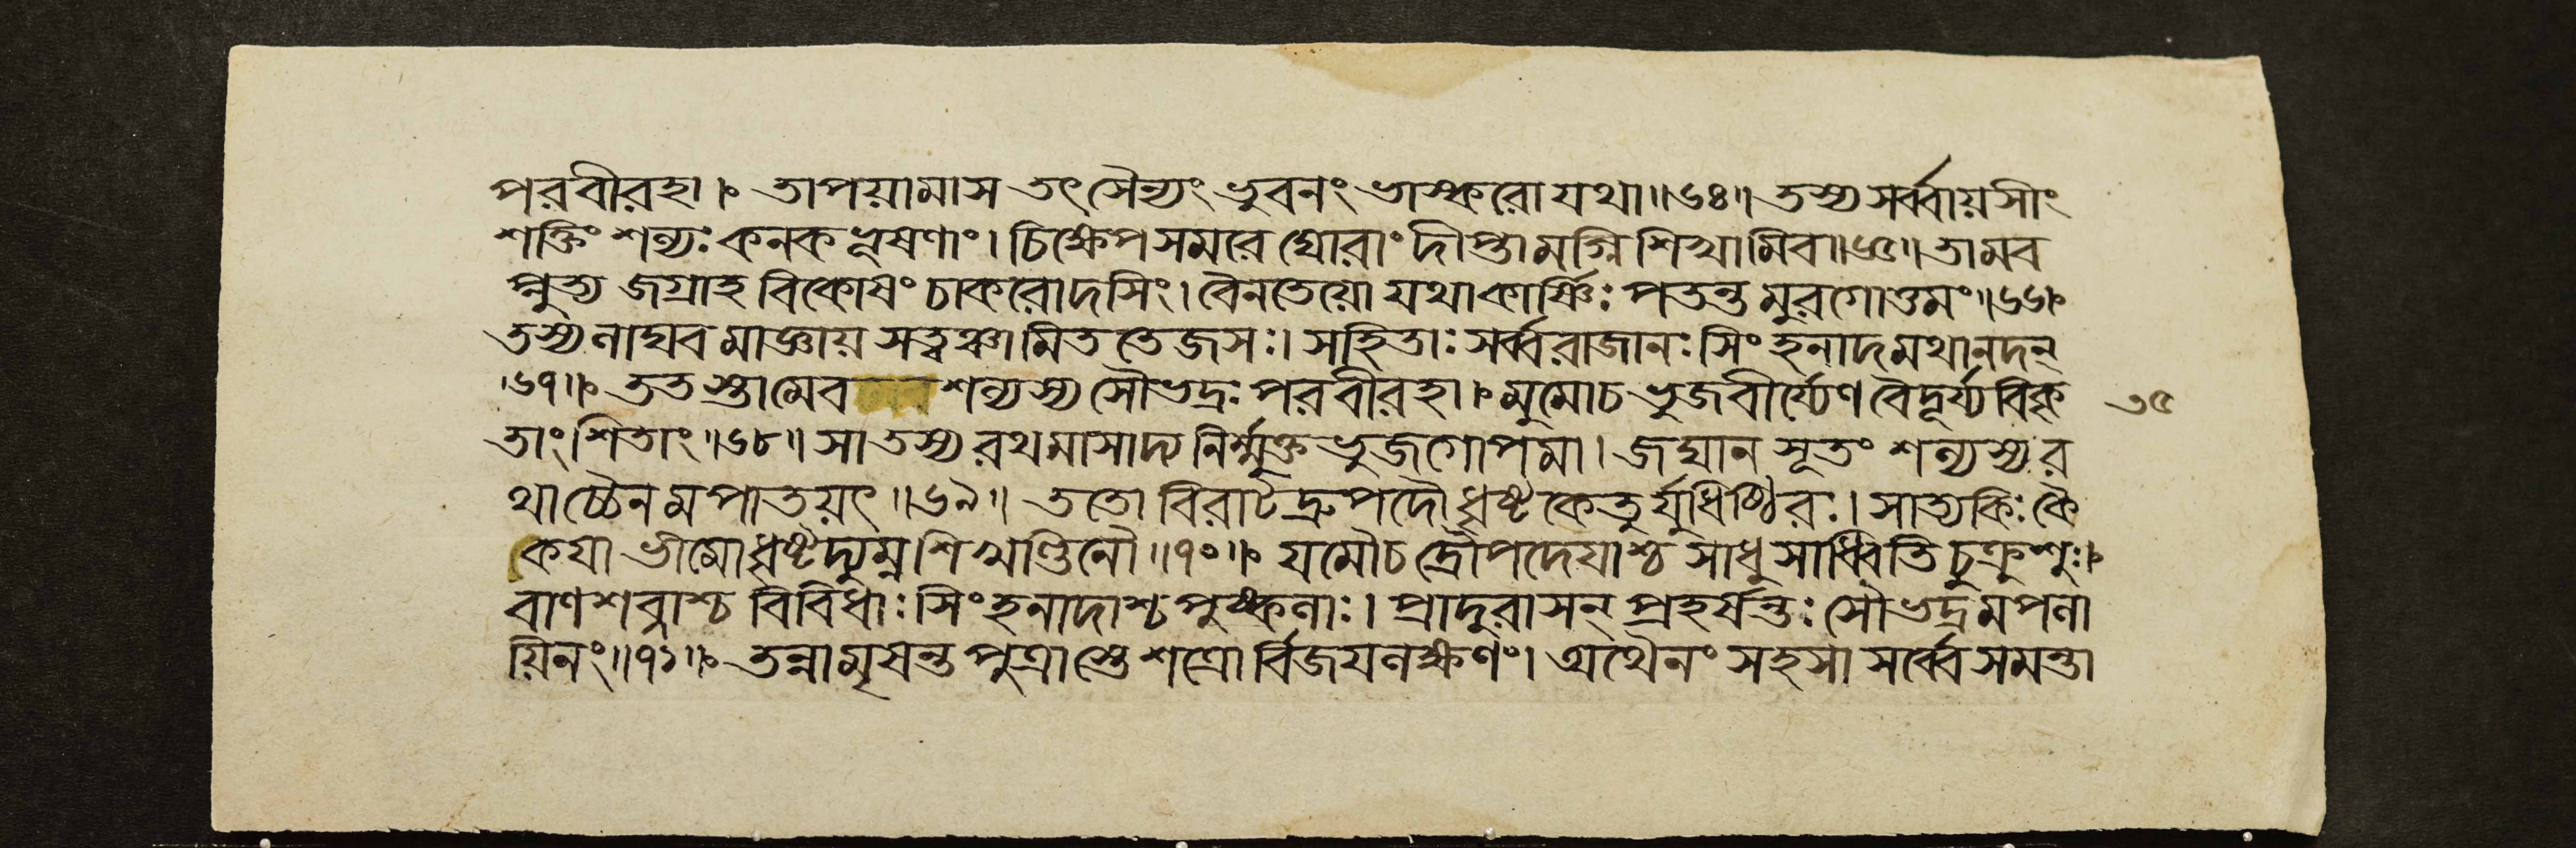 পরবীরহা।ং তাপয়ামাস তৎসৈন্যং ভুবনং ভাস্করো যথা॥৬৪॥ তস্য সর্ব্বায়সীং
শক্তিং শল্যঃ কনকভূষণাং। চিক্ষেপ সমরে ঘোরাং দীপ্তামগ্নিশিখামিব॥৬৫॥ তামব
প্লুত্য জগ্রাহ বিকোষং চাকরোদসিং। বৈনতেয়ো যথা কার্ষ্ণিঃ পতন্তমুরগোত্তমং॥৬৬॥
তস্য লাঘবমাজ্ঞায় সত্ত্বঞ্চামিততেজসঃ। সহিতাঃ সর্ব্বরাজানঃ সিংহনাদমথানদন্
।৬৭॥ ততস্তামেব শল্যস্য সৌভদ্রঃ পরবীরহা। মুমোচ ভুজবীর্য্যেণ বৈদূর্য্যবিকৃ
তাং শিতাং॥৬৮॥ সা তস্য রথমাসাদ্য নির্ম্মুক্তভুজগোপমা। জঘান সূতং শল্যস্য র
থাচ্চৈনমপাতয়ৎ॥৬৯॥ ততো বিরাটদ্রুপদৌ ধৃষ্টকেতুর্যুধিষ্ঠিরঃ। সাত্যকিঃ কৈ
কেযা ভীমো ধৃষ্টদ্যুম্নশিখণ্ডিনৌ॥৭০॥ যমৌ চ দ্রৌপদেযাশ্চ সাধুসাধ্বিতি চুক্রুশুঃ।
বাণশব্দাশ্চ বিবিধাঃ সিংহনাদাশ্চ পুষ্কলাঃ। প্রাদুরাসন্ প্রহর্ষন্তঃ সৌভদ্রমপলা
য়িনং॥৭১॥ তন্নামৃষন্ত পুত্রাস্তে শত্রোর্বিজযলক্ষণং। অথৈনং সহসা সর্ব্বে সমন্তা
৩৫